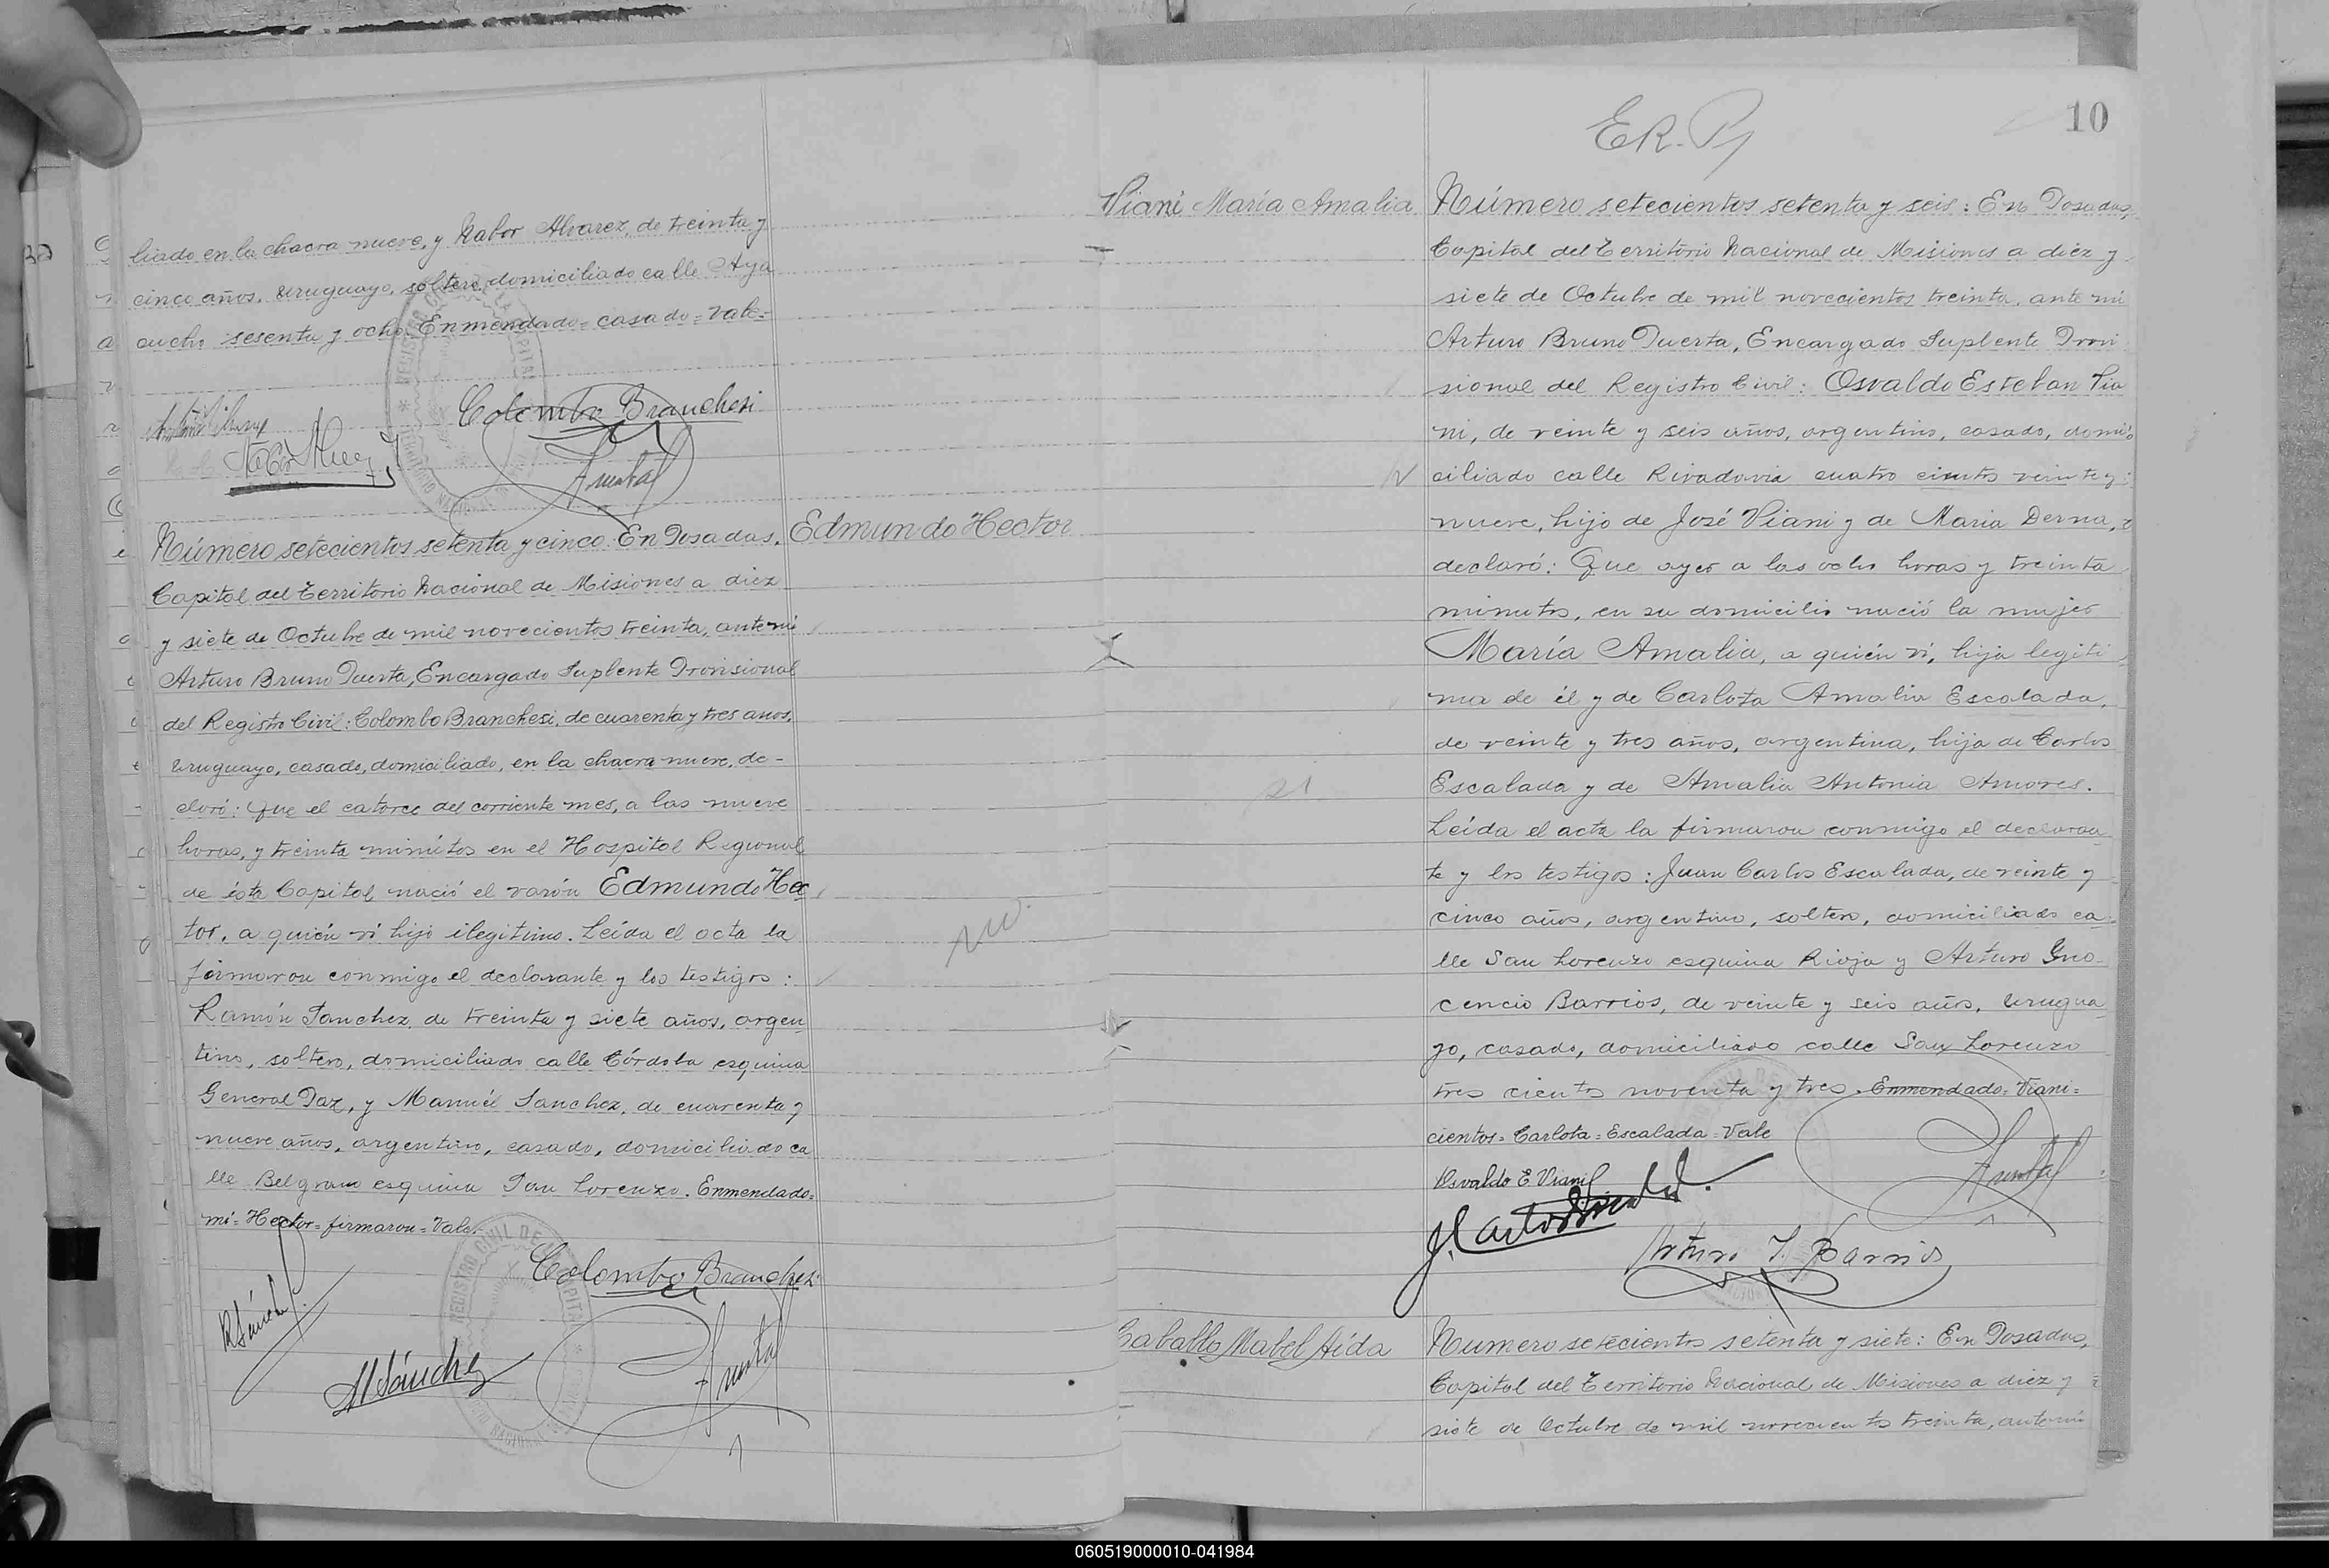 liado en la chacra nueve, y Nabor Alvarez, de treinta y
cinco años, uruguayo, soltero, domiciliado calle Aya
cucho sesenta y ocho. Enmendado=casado=Vale=
Colombo Branchesi
Número setecientos setenta y cinco: En Posadas,
Edmundo Hector
Capital del Territorio Nacional de Misiones a diez
y siete de Octubre de mil novecientos treinta, ante mi
Arturo Bruno Puerta, Encargado Suplente Provisional
del Registro Civil: Colombo Branchesi, de cuarenta y tres anos,
uruguayo, casado, domiciliado, en la chacra nueve, de-
claró: Que el catorce del corriente mes, a las nueve
horas, y treinta minutos en el Hospital Regional
de ésta Capital nació el varón Edmundo Hec
tor, a quién vi hijo ilegitimo. Leída el acta la
firmaron conmigo el declarante y los testigos:
Ramón Sanchez, de treinta y siete años, argen
tino, soltero, domiciliado calle Córdoba esquina
General Paz, y Manuél Sanchez, de cuarenta y
nueve años, argentino, casado, domiciliado ca
lle Belgrano esquina San Lorenzo. Enmendado=
mi=Hector=firmaron=Vale.
Colombo Branchesi
R Sánchez
M Sánchez
10
E.R.P
Viani María Amalia
Número setecientos setenta y seis: En Posadas,
Capital del Territorio Nacional de Misiones a diez y
siete de Octubre de mil novecientos treinta, ante mi
Arturo Bruno Puerta, Encargado Suplente Provi
sional del Registro Civil: Osvaldo Esteban Via
ni, de veinte y seis años, argentino, casado, domi
ciliado calle Rivadavia cuatro cientos veinte y
nueve, hijo de José Viani y de Maria Derna,
declaró: Que ayer a las ocho horas y treinta
minutos, en su domicilio nació la mujer
María Amalia, a quién vi, hija legiti
ma de él y de Carlota Amalia Escalada,
de veinte y tres años, argentina, hija de Carlos
Escalada y de Amalia Antonia Amores.
Leída el acta la firmaron conmigo el declaran
te y los testigos: Juan Carlos Escalada, de veinte y
cinco años, argentino, soltero, domiciliado ca
lle San Lorenzo esquina Rioja y Arturo Ino
cencio Barrios, de veinte y seis años, urugua
yo, casado, domiciliado calle San Lorenzo
tres cientos noventa y tres. Enmendado=Viani=
cientos=Carlota=Escalada=Vale
Osvaldo E Viani
Arturo I. Barrios
Caballo Mabel Aída
Numero setecientos setenta y siete: En Posadas,
Capital del Territorio Nacional de Misiones a diez y
siete de Octubre de mil novecientos treinta, ante mi
060519000010-041984